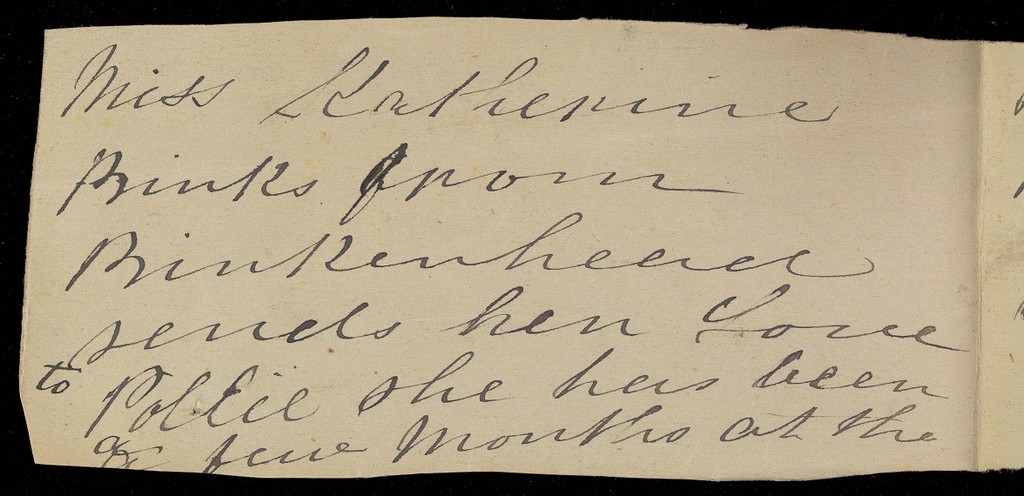 Miss Katherine
Binks from
Birkenhead
sends her Love
to Pollie she has been
a few Months at the